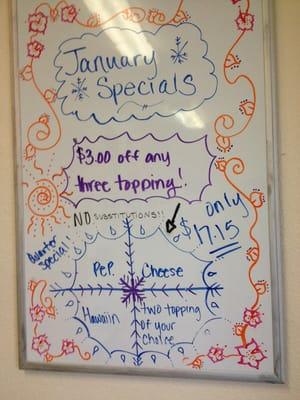 January
Specials
$3.00 off any
three topping!
NO SUBSTITUTIONS!!
Quarter
special!
$ only
17.15
Pep.
Cheese
Hawaiin
two topping
of your
choice